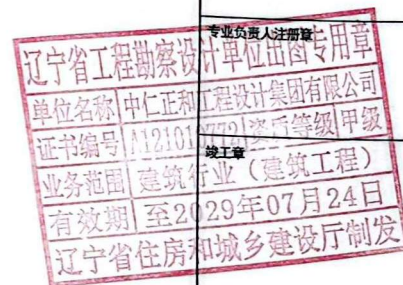 专业负责人注册章
辽宁省工程勘察设计单位出图专用章
单位名称 中仁正和工程设计集团有限公司
证书编号 资质等级 甲级
竣工章
业务范围 建筑行业（建筑工程）
有效期 至2029年07月24日
辽宁省住房和城乡建设厅制发